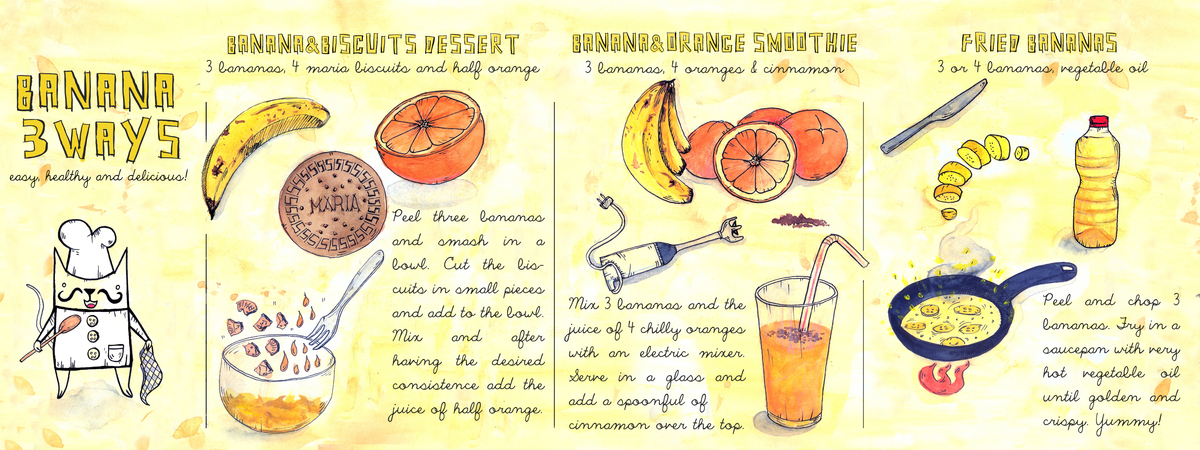 BANANA
3 WAYS
easy, healthy and delicious!
BANANA & BISCUITS DESSERT
3 bananas, 4 maria biscuits and half orange
MARIA
Peel three bananas
and smash in a
bowl. Cut the bis-
cuits in small pieces
and add to the bowl.
Mix and after
having the desired
consistence add the
juice of half orange.
BANANA & ORANGE SMOOTHIE
3 bananas, 4 oranges & cinnamon
Mix 3 bananas and the
juice of 4 chilly oranges
with an electric mixer.
Serve in a glass and
add a spoonful of
cinnamon over the top.
FRIED BANANAS
3 or 4 bananas, vegetable oil
Peel and chop 3
bananas. Fry in a
saucepan with very
hot vegetable oil
until golden and
crispy. Yummy!